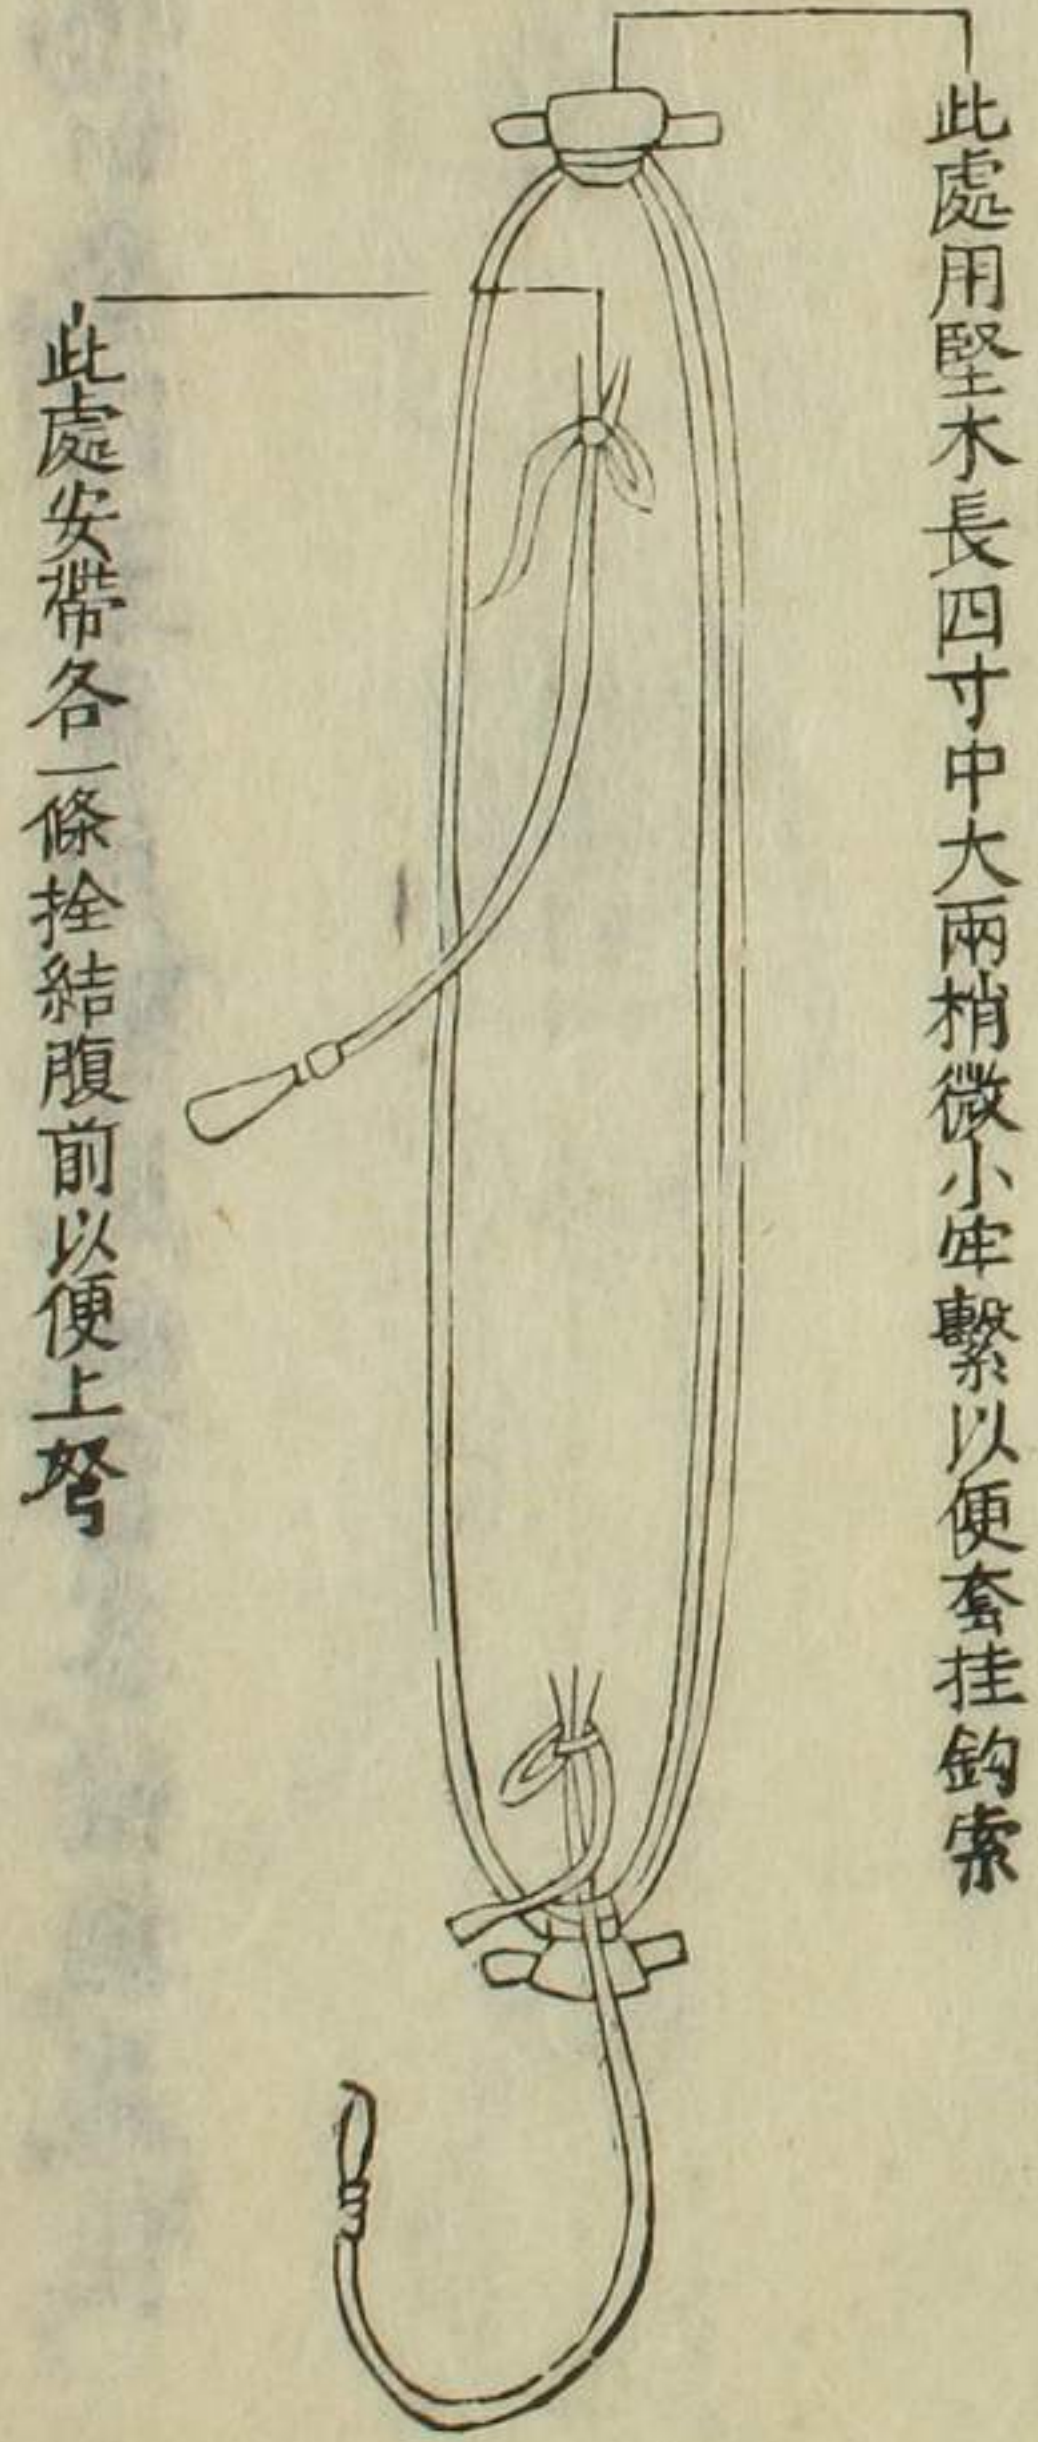 此處用堅木長四寸中大兩梢微小牢繫以便套挂鈎索
此處安帶各一條拴結腹前以便上弩